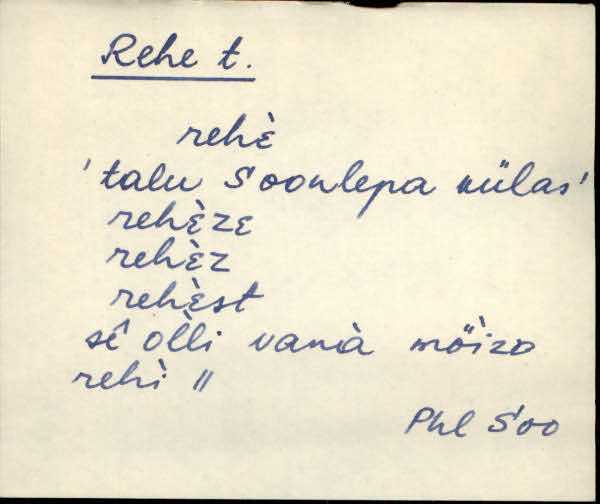 Rehe t.
rehὲ
'talu Soonlepa külas'
rehὲzɛ
rehὲz
rehὲst
sê òlli vanà mȫ̀izɒ
rehì ॥
Phl Soo